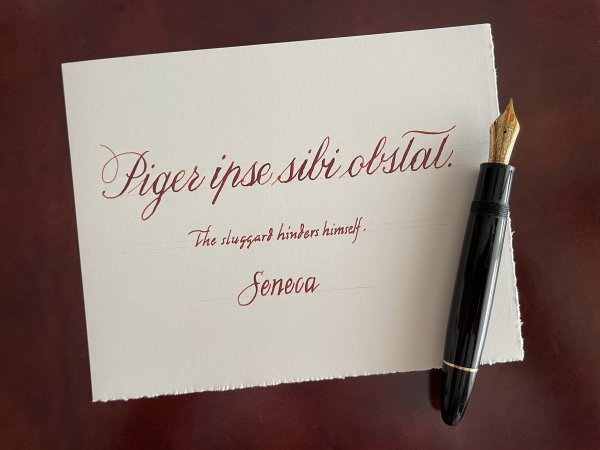 Piger ipse sibi obstat.
The sluggard hinders himself.
Seneca